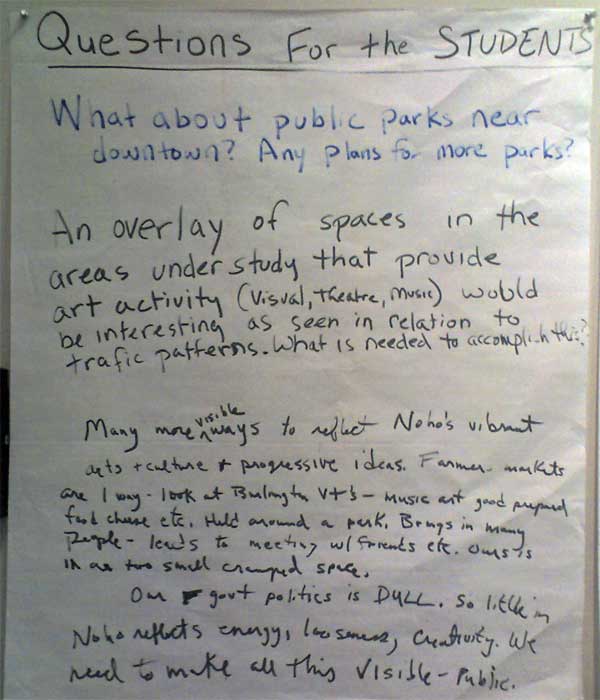 Questions For the STUDENTS
What about public parks near
downtown? Any plans for more parks?
An overlay of spaces in the
areas under study that provide
art activity (Visual, Theatre, Music) would
be interesting as seen in relation to
trafic patterns. What is needed to accomplish this?
visible
Many more ways to reflect Noho's vibrant
arts + culture + progressive ideas. Farmer markets
are 1 way - look at Burlington Vt's - music art good prepared
food cheese etc. Held around a park. Brings in many
people - leads to meeting w/ friends etc. Ours is
in a too small cramped space.
Our govt politics is DULL. So little in
Noho reflects energy, looseness, creativity. We
need to make all this Visible - Public.